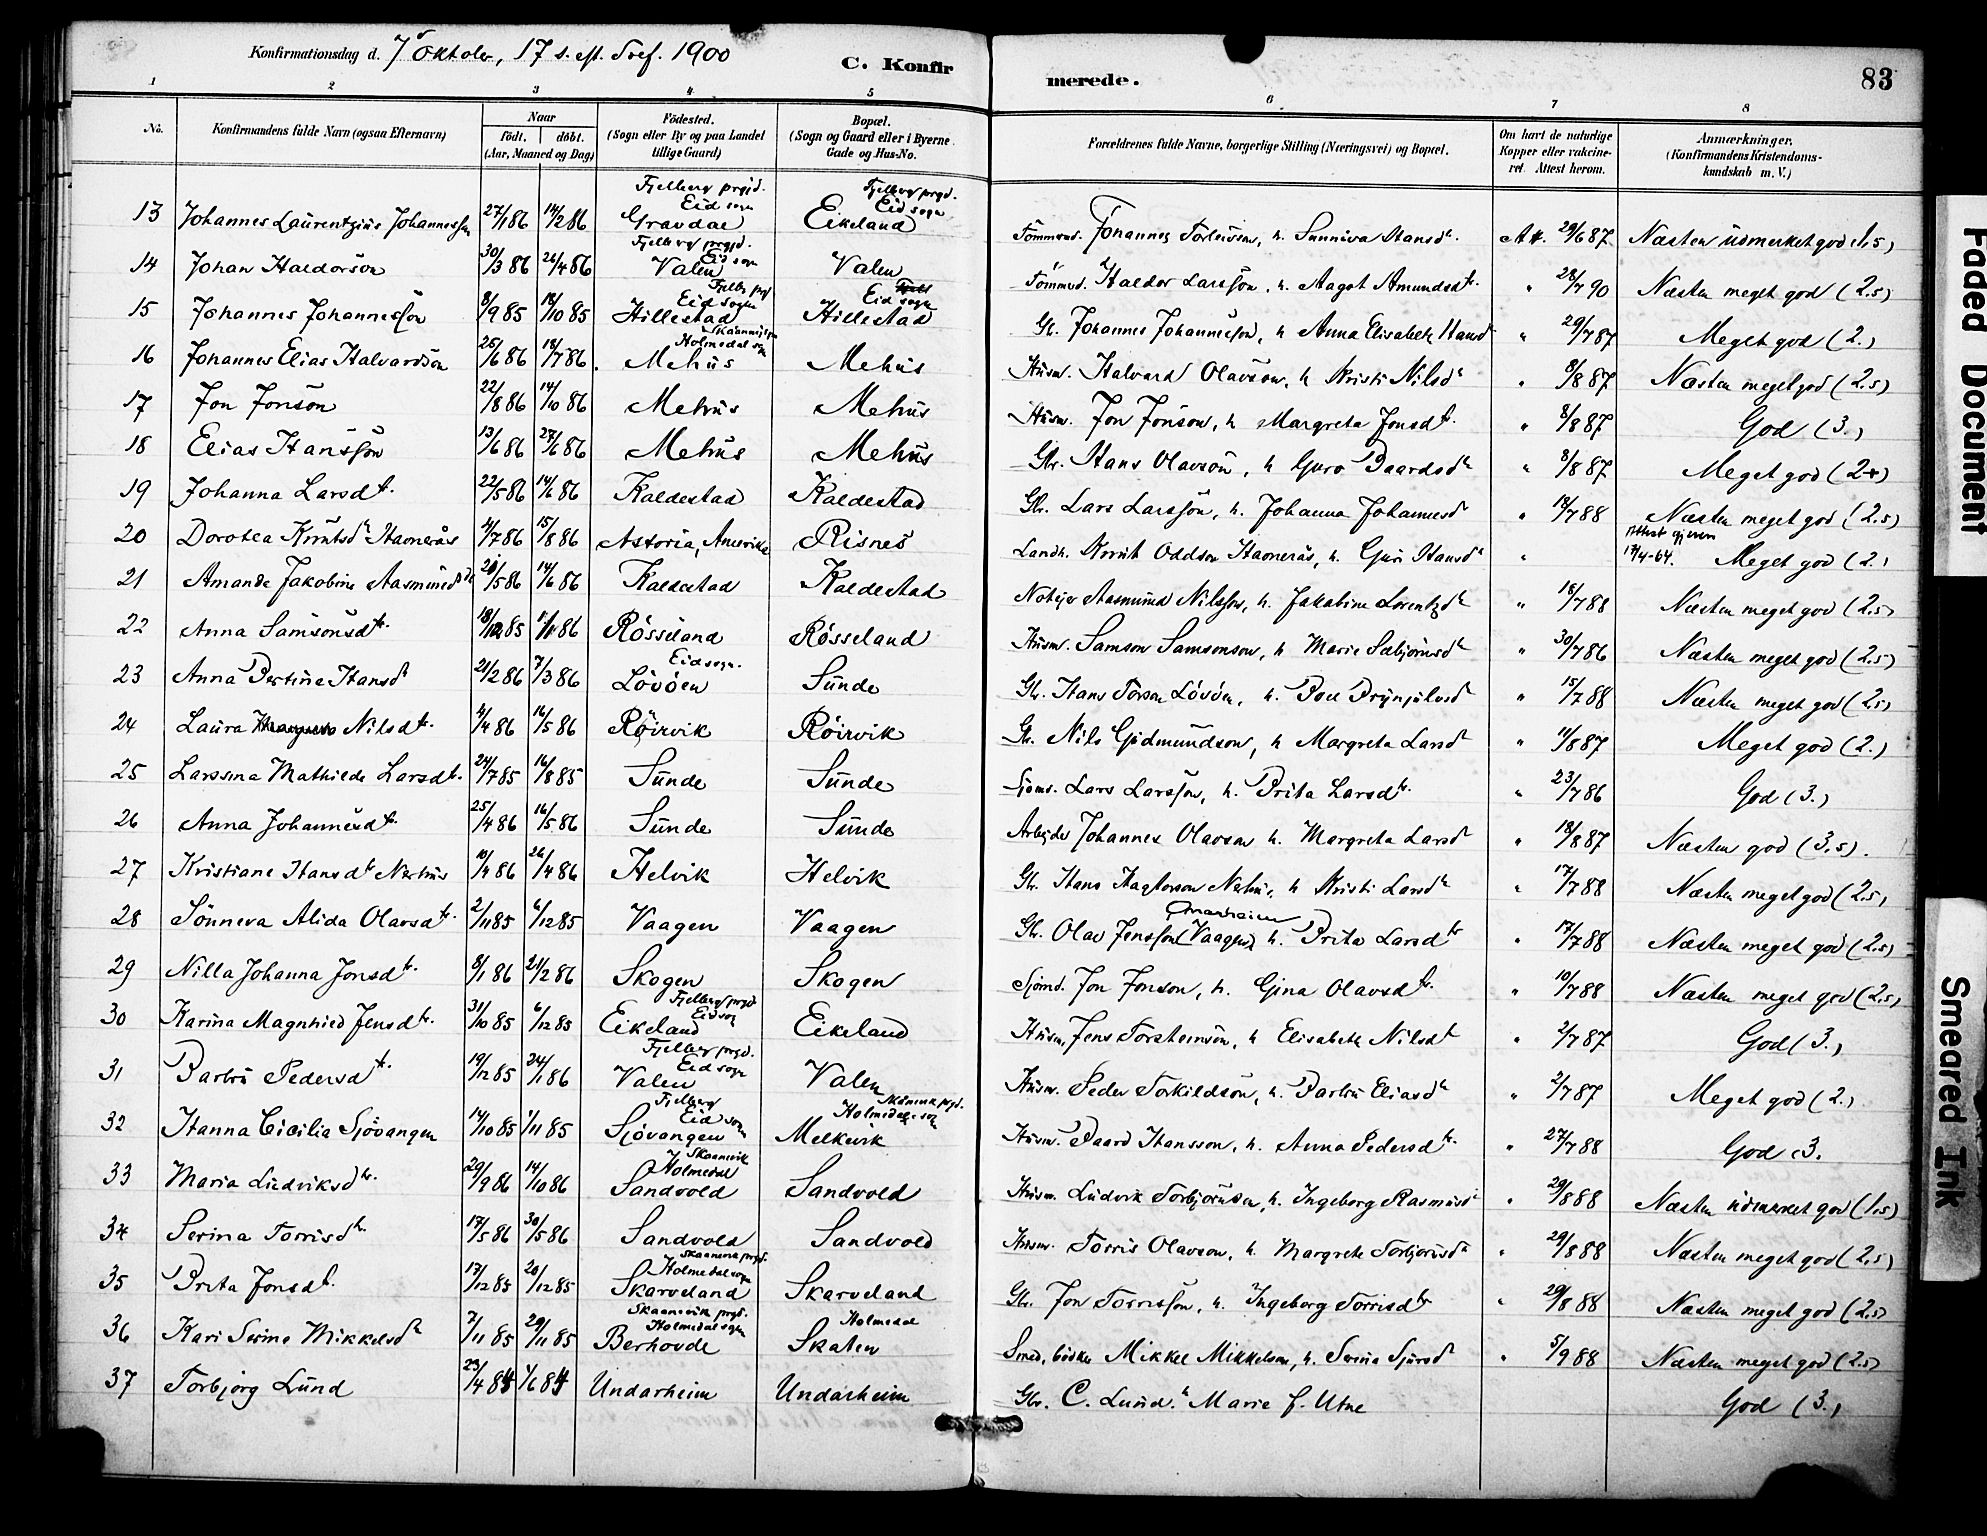 Konfirmationsdag d. 7de Oktober, 17 s. eft. Tref. 1900
C. Konfirmerede.
83
1 2 3 4 5 6 7 8
No.
Konfirmandens fulde Navn (ogsaa Efternavn)
Naar
födt. döbt.
(Aar, Maaned og Dag)
Födested.
(Sogn eller By og paa Landet
tillige Gaard)
Bopæl.
(Sogn og Gaard eller i Byerne
Gade og Hus-No.
Forældrenes fulde Navne, borgerlige Stilling (Næringsvei) og Bopæl.
Om havt de naturlige
Kopper eller vakcine-
ret. Attest herom.
Anmærkninger,
(Konfirmandens Kristendoms-
kundskab m. V.)
Fjelberg prgjd. Eid sogn Fjelberg prgd. Eid sogn
13 Johannes Laurentzius Johannessøn 27/1 86 14/2 86 Gravdal Eikeland Tømmerm. Johannes Torleivson, h. Sunniva Hansd. Att. 29/6 87 Næsten udmerket god (1,5)
Fjelberg prgjd. Eid sogn
14 Johan Haldorsøn 30/3 86 26/4 86 Valen Valen Tømmerm. Haldor Larssøn, h. Aagot Amundsdtr. " 28/7 90 Næsten meget god (2.5)
Fjelb. prgd Eid sogn Eid sogn
15 Johannes Johannessøn 8/9 85 18/10 85 Hillestad Hillestad Gbr. Johannes Johannessøn, h Anna Elisabeth Hansd " 29/7 87 Meget god (2.)
Holmedal sogn
16 Johannes Elias Halvardsøn 25/6 86 18/7 86 Mehus Mehus Husm. Halvard Olavson, h Kristi Nilsdr " 9/8 87 Næsten meget god (2.5)
17 Jon Jonson 22/8 86 14/10 86 Mehus Mehus Husm. Jon Jonson, h Margreta Jonsdtr. " 8/8 87 God (3.)
18 Elias Hanssøn 13/6 86 27/6 86 Mehus Mehus Gbr. Hans Olavson, h Guro Baardsdr " 8/8 87 Meget god (2+)
19 Johanna Larsdtr. 22/5 86 14/6 86 Kaldestad Kaldestad Gbr. Lars Larssøn, h. Johanna Johannesdr " 18/7 88 Næsten meget god (2.5)
20 Dorotea Knutsdr Haaneraas 4/7 86 15/8 86 Astoria, Amerika Risnes Landh. Knut Oddson Haaneraas, h. Guri Hansdr " Attest given 17/4-64. Meget god (2.)
21 Amanda Jakobine Aasmundsdtr 20/5 86 14/6 86 Kaldestad Kaldestad Aasmund Nilssøn, h. Jakobine Lorentzdr " 18/7 88 Næsten meget god (2.5)
22 Anna Samsonsdtr. 18/12 85 1/1 86 Røsseland Røsseland Husm. Samson Samsonson, h Marie Sæbjørnsdr " 30/7 86 Næsten meget god (2.5)
Eid sogn.
23 Anna Bertine Hansdr 21/2 86 7/3 86 Løvøen Sunde Gbr. Hans Torson Løvøen, h. Brynjulvsdr " 15/7 88 Næsten meget god (2.5)
24 Laura Nilsdtr. 4/4 86 16/5 86 Røirvik Røirvik Gbr. Nils Gudmundson, h Margreta Larsdr " 11/8 87 Meget god (2.)
25 Larssina Mathilde Larsdtr. 24/7 85 16/8 85 Sunde Sunde Sjøm. Lars Larssøn, h. Brita Larsdtr. " 23/7 86 God (3.)
26 Anna Johannesdtr. 25/4 86 16/5 86 Sunde Sunde Arbejder Johannes Olavson h. Margreta Larsdr " 18/8 87 Næsten god (3,5).
27 Kristiane Hansdtr Nerhus 10/4 86 26/4 86 Helvik Helvik Gbr. Hans Hagtorson Nerhus, h Kristi Larsdr " 17/7 88 Næsten meget god (2.5)
28 Sønneva Alida Olavsdtr. 2/11 85 6/12 85 Vaagen Vaagen Gbr. Olav Jenssøn (Vaagen) h. Brita Larsdtr " 17/7 88 Næsten meget god (2.5)
29 Nilla Johanna Jonsdtr. 8/1 86 21/2 86 Skogen Skogen Sjømd. Jon Jonson, h. Gina Olavsdtr. " 10/7 88 Næsten meget god (2.5)
Fjelberg prgd Eid sogn
30 Karina Magnhild Jensdtr. 31/10 85 6/12 85 Eikeland Eikeland Husm. Jens Torsteinson, h Elisabeth Nilsdtr " 2/7 87 God (3.)
Fjelberg prgd. Eid sogn
31 Barbru Pedersdtr. 19/12 85 24/1 86 Valen Valen Husm. Peder Torkildson, h. Barbru Eliasdr " 2/7 87 Meget god (2.)
Fjelberg Eid sogn Skånevik prgd. Holmedals sogn
32 Hanna Cicilia Sjøvangen 14/10 85 1/11 85 Sjøvangen Melkevik Husm. Baard Hansson, h. Anna Pedersdtr. " 27/7 88 God (3.
Skaanevik Holmedal
33 Maria Ludviksdtr. 29/9 86 14/10 86 Sandvold Sandvold Husm. Ludvik Torbjørnson, h. Ingeborg Rasmusdr " 29/8 88 Næsten udmerket god (1.5)
34 Serina Torrisdtr. 17/5 86 30/5 86 Sandvold Sandvold Husm. Torris Olavson, h. Margrete Torbjørnsdr " 29/8 88 Næsten meget god (2.5)
Skaanevik prgd. Holmedal sogn
35 Brita Jonsdtr. 17/12 85 20/12 85 Skarveland Skarveland Gbr. Jon Torrissøn, h. Ingeborg Torrisdtr " 29/8 88 Næsten meget god (2.5)
Skaanevik prgd. Holmedal sogn Holmedal
36 Kari Serine Mikkelsdr 7/11 85 29/11 85 Berhovde Skaten Smed, bødker Mikkel Mikkelson, h. Serina Sjursdr " 5/9 88 Næsten meget god (2.5)
37 Torbjørg Lund 23/4 84 1/6 84 Undarheim Undarheim Gbr. C. Lund. h Marie f. Utne God (3.)
Faded Document
Smeared Ink